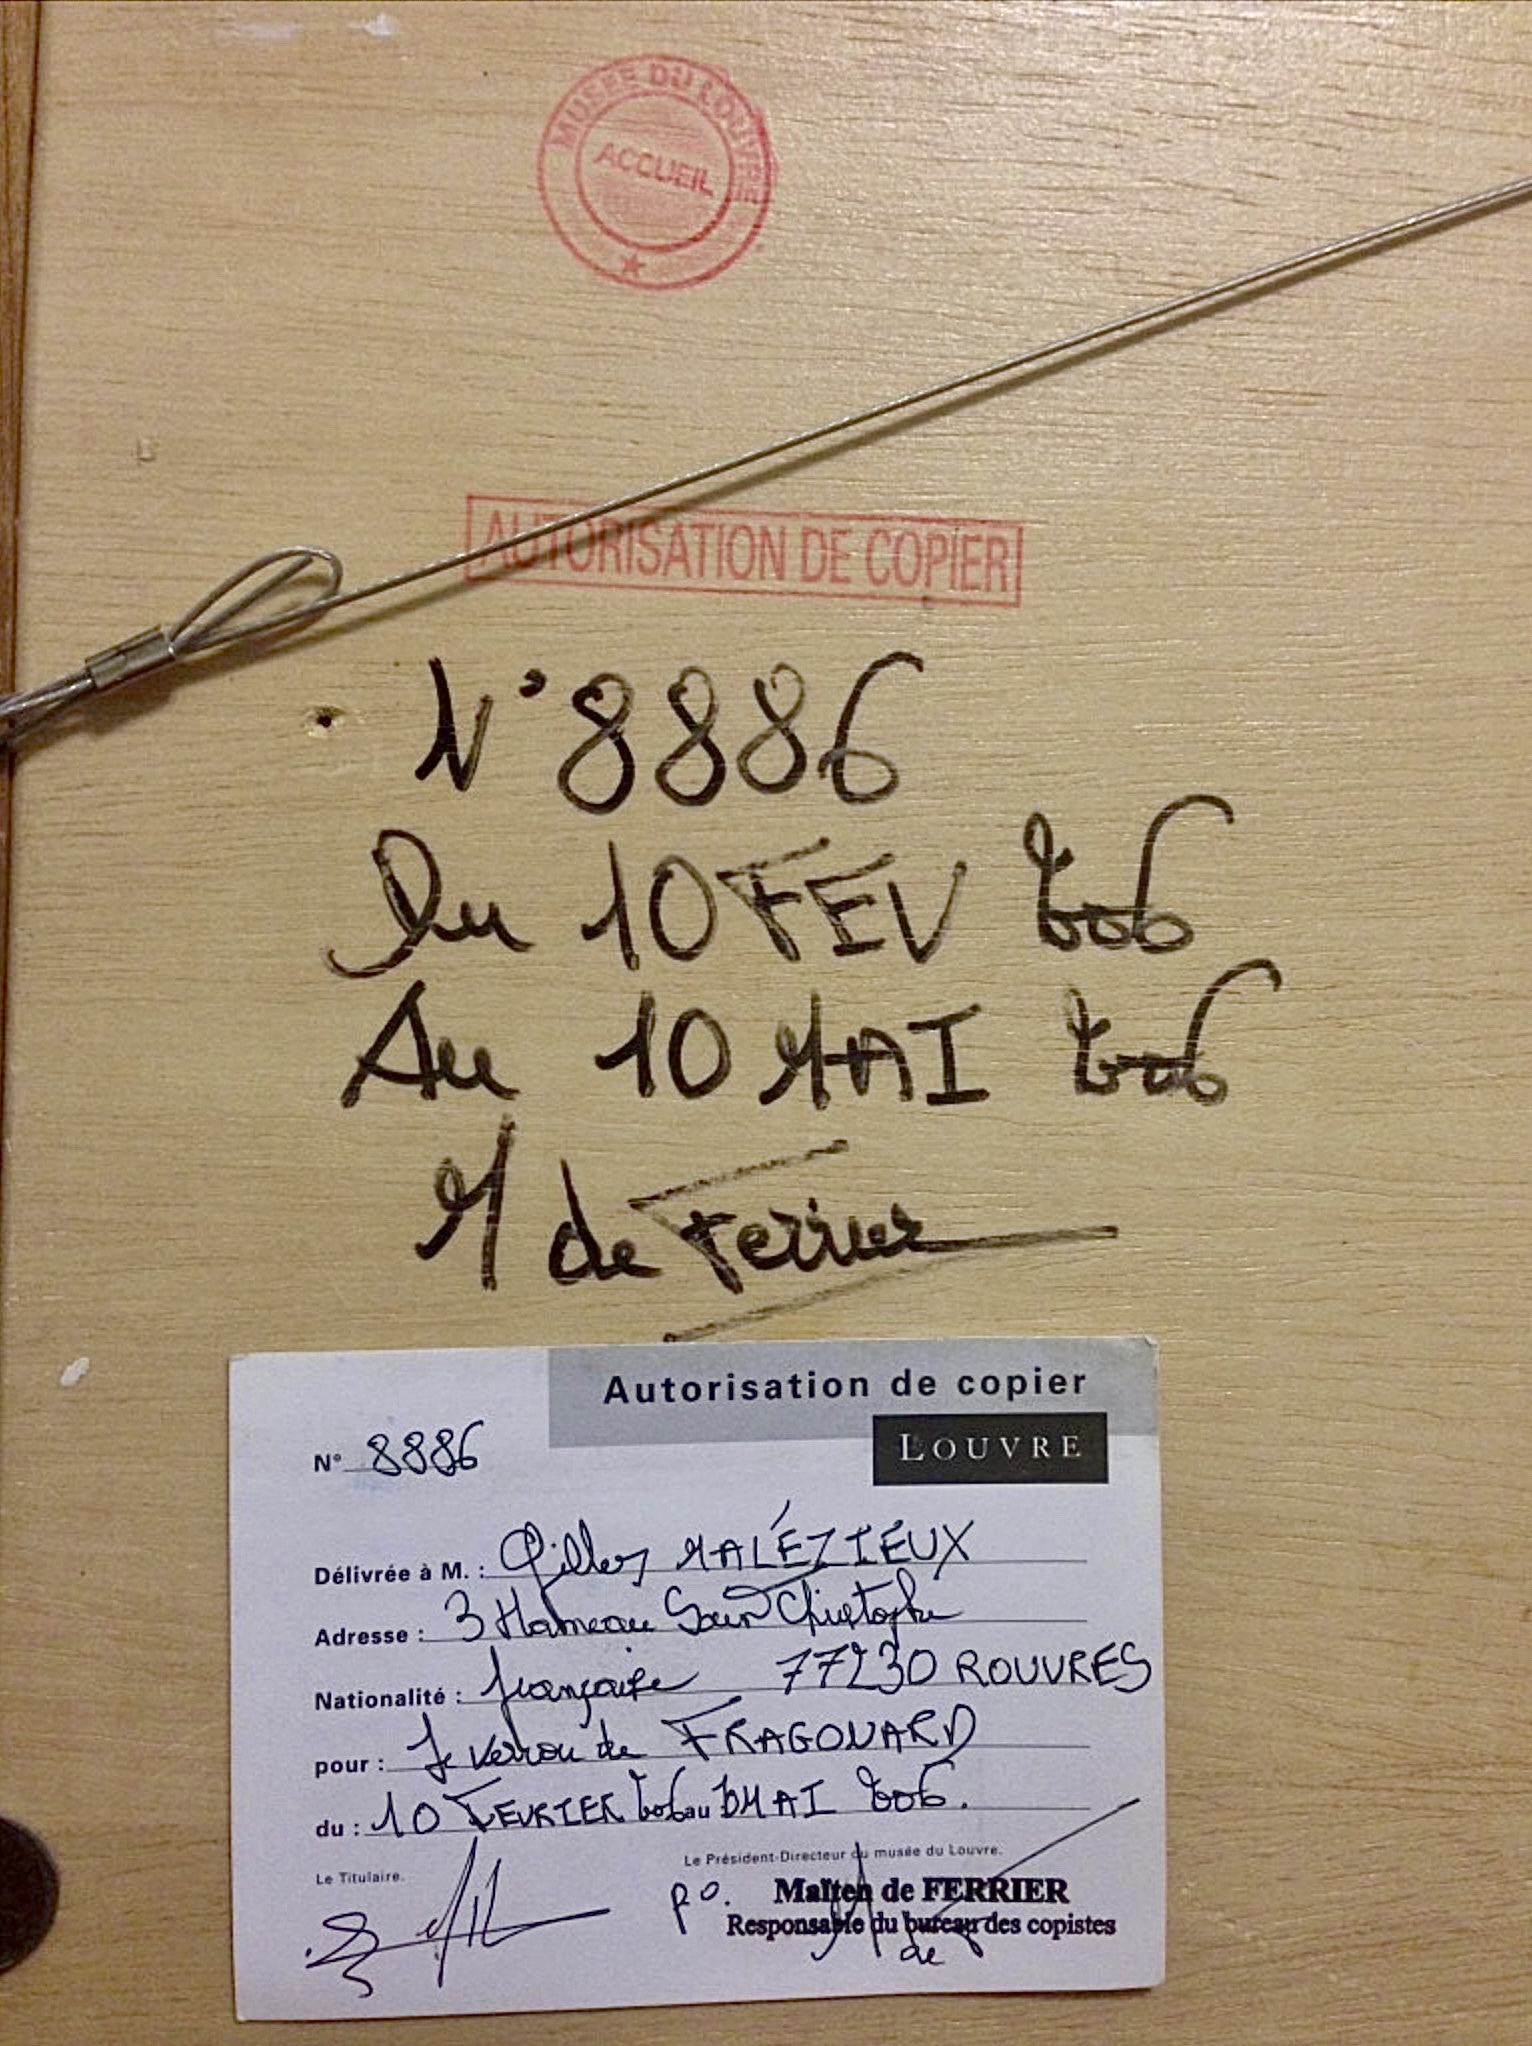 MUSEE DU LOUVRE
ACCUEIL
AUTORISATION DE COPIER
N° 8886
Du 10 FEV 2006
Au 10 MAI 2006
M de Ferrier
Autorisation de copier
LOUVRE
N° 8886
Délivrée à M. : Gilles MALÉZIEUX
Adresse : 3 Hameau Saint Christophe
Nationalité : française 77230 ROUVRES
pour : le verrou de FRAGONARD
du : 10 FEVRIER 2006 au 10 MAI 2006.
Le Titulaire.
Le Président-Directeur du musée du Louvre.
p o. Maïten de FERRIER
Responsable du bureau des copistes
M de